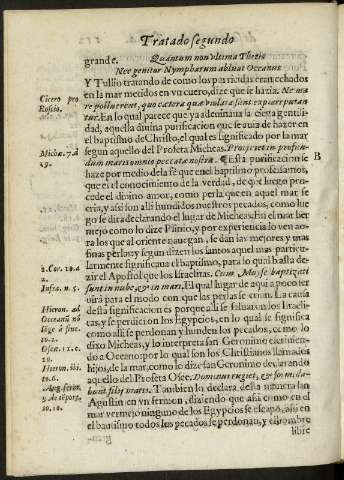 Tratado segundo
grande. Quantum non vltima Thetis
Nec genitor Nympharum abluat Oceanus
Y Tullio tratando de como los parricidas eran echados
en la mar metidos en vn cuero, dize que se hazia. Ne ma
re polluerent, quo cætera quæ violata sunt expiari putan
tur. En lo qual parece que ya adeuinaua la ciega gentili-
dad, aquella diuina purificacion que se auia de hazer en
el baptismo de Christo, el qual es significado por la mar
segun aquello del Profeta Micheas. Proijciet in profun-
dum maris omnia peccata nostra. ¶ Esta purificacion se
haze por medio de la fè que en el baptismo professamos,
que es el conocimiento de la verdad, de que luego pro-
cede el diuino amor, como perla que en aquel mar se
cria, y assi son alli hundidos nuestros pecados, como lue
go se dira declarando el lugar de Micheas. En el mar ber
mejo como lo dize Plinio, y por experiencia lo ven ao-
ra los que al oriente nauegan, se dan las mejores y mas
finas perlas: y segun dizen los santos aquel mas particu-
larmente significaua el baptismo, para lo qual basta de-
zir el Apostol que los Israelitas. Cum Moyse baptizati
sunt in nube, & in mari. El qual lugar de aqui a poco ser
uirà para el modo con que las perlas se crian. La causa
desta significacion es porque alli se saluaron los Israeli-
tas, y se perdieron los Egypcios, en lo qual se significa
como alli se perdonan y hunden los pecados, como lo
dixo Micheas, y lo interpreta san Geronimo excluiendo
a Oceano: por lo qual son los Christianos llamados
hijos, de la mar, como lo dize san Geronimo declarando
aquello del Profeta Osee. Dominus rugiet, & formida-
bunt filij maris. Tambien lo declara desta manera san
Agustin en vn sermon, diziendo que assi como en el
mar vermejo ninguno de los Egypcios se escapò, assi en
el bautismo todos los pecados se perdonan, y el hombre
libre
Cicero pro
Roscio.
Michæ. 7. a
19.
B
1. Cor. 10. a
2.
Infra. n. 5.
Hieron. ad
Oceanũ nõ
lõge à fine.
to. 2.
Osee. 11. c.
10.
Hieron. ibi.
to. 6.
Aug. serm.
to. 10.